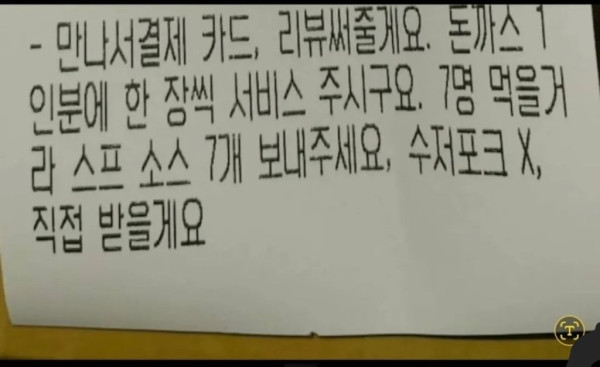 - 만나서결제 카드, 리뷰써줄게요. 돈까스 1
인분에 한 장씩 서비스 주시구요. 7명 먹을거
라 스프 소스 7개 보내주세요, 수저포크 X,
직접 받을게요